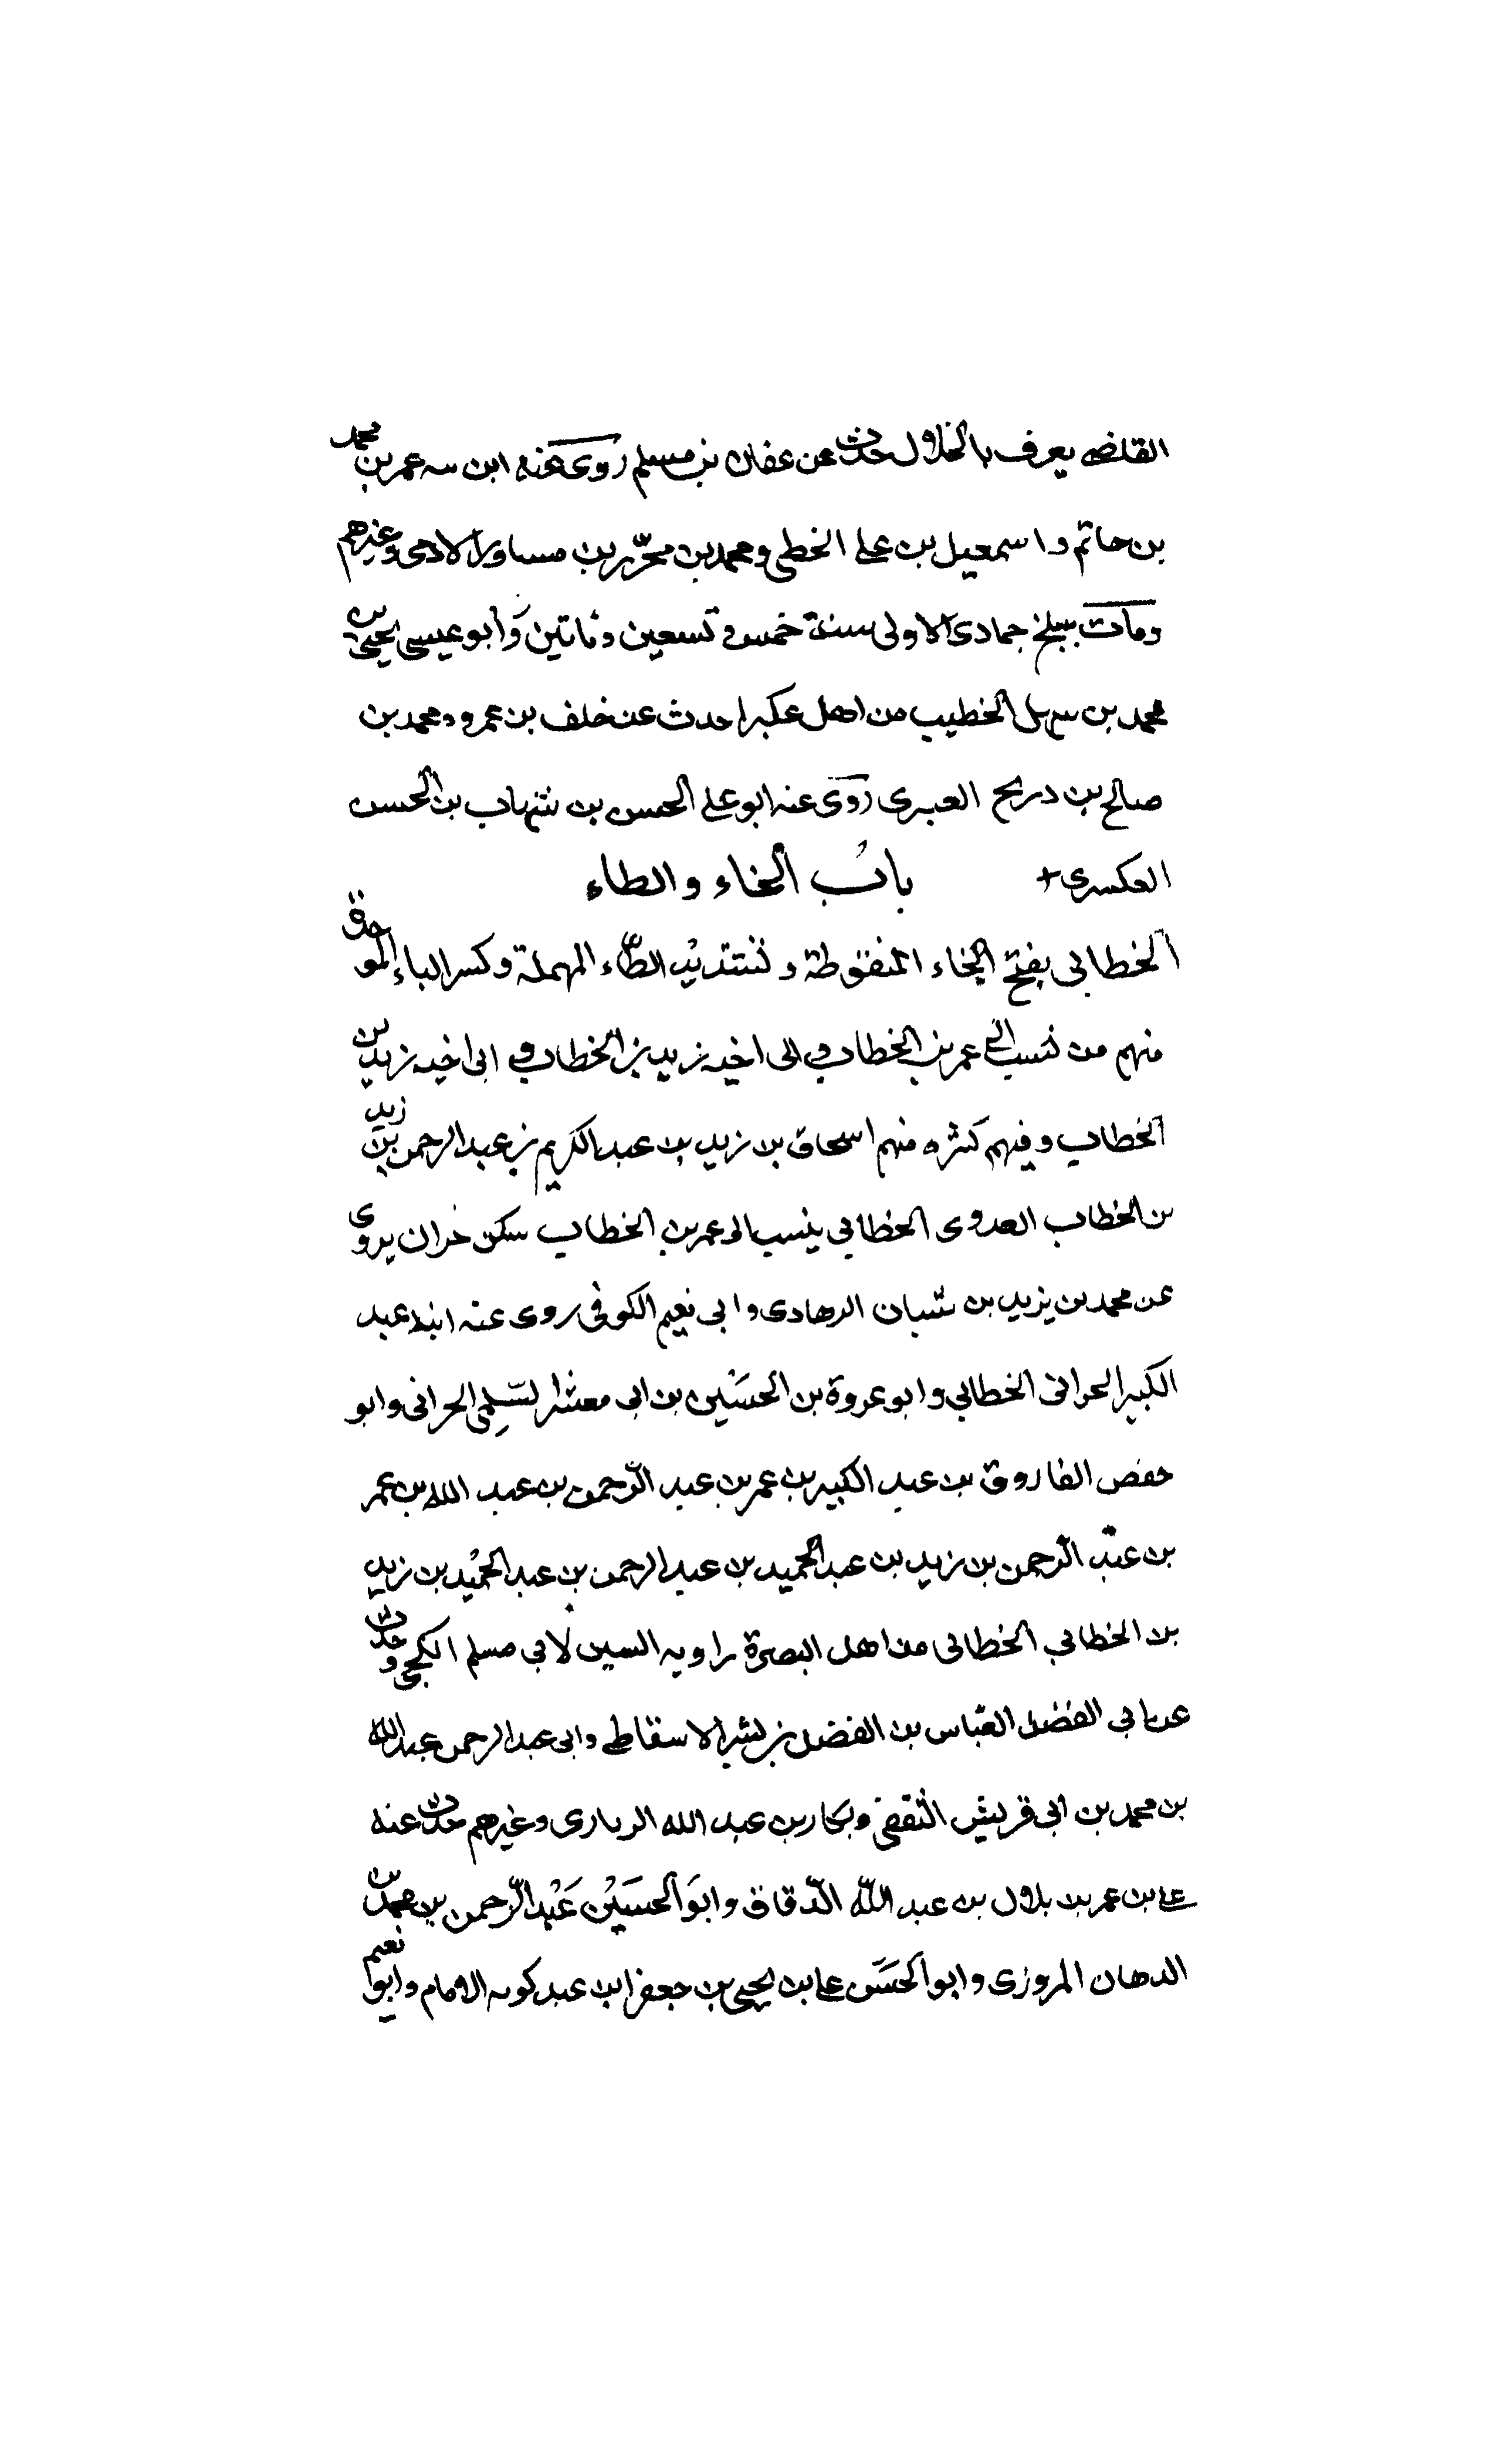 القاضى يعرف بالخلال حدث عن عفان بن مسلم روى عنه ابن سه عمر بن محمد
بن حاتم واسمعيل بن على الخطى ومحمد بن محرّر بن مساور الادمى وغيرهم
ومات بسلخ جمادى الاولى سنة خمس وتسعين ومائتين وَابو عيسى يحيى بن
محمد بن سهل الخطيب من اهل عكبرا حدث عن خلف بن عمرو ومحمد بن
صالح بن دريح العبرى روى عنه ابو على الحسن بن شهاب بن الحسن
العكسرى + بابُ الخاء والطاء
الخطابى بفتح الخاء المنقوطة وتشديد الطّاء المهملة وكسر الباء الموحدة
منهم من نسب الى عمر بن الخطاب والى اخيه زيد بن الخطاب وفى ابى اخيه زيد بن
الخطاب وفيهم كثره منهم اسحاق بن زيد بن عبد الكريم بن عبد الرحمن بن زيد
بن الخطاب العدوى الخطابي ينسب الى عمر بن الخطاب سكن حران يروى
عن محمد بن يزيد بن سنان الرهاوى وابى نعيم الكوفى روى عنه ابنه عبد
الكبير الحرانى الخطابي وابو عروة بن الحسَين بن ابى معشر السّلمى الحرانى وابو
حفص الفاروق بن عبد الكبير بن عمر بن عبد الرّحمن بن عبد الله بن عمر
بن عبْد الرّحمن بن زيد بن عبد الحميد بن عبد الرحمن بن عبد الحمْيد بن زيد
بن الخطاب الخطابى من اهل البصرة راويه السين لابي مسلم الكجى وحدث
عن ابي الفضل العّباس بن الفضل بن بشر الاسقاطى وابى عبد الرحمن عبد الله
بن محمد بن ابى قريش الثقفى وبكار بن عبد الله الريارى وغيرهم حدث عنه
على بن عمر بن بلال بن عبد اللّه الدّقاق وابوَ الحسَيْن عَبْد الرّحمن بن محمد بن
الدهان المروزى وابو الحسَن على بن يحيى بن جعفر ابن عبدكويه الامام وابو نعيم